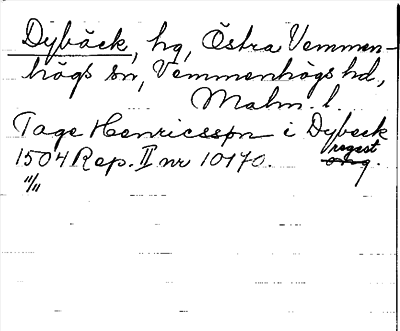 Dybäck, hg, Östra Vemmen-
högs sn, Vemmenhögs hd,
Malm. l.
Tage Henricsson i Dybeck
1504 Rep. II nr 10170. regest
orig.
"/11